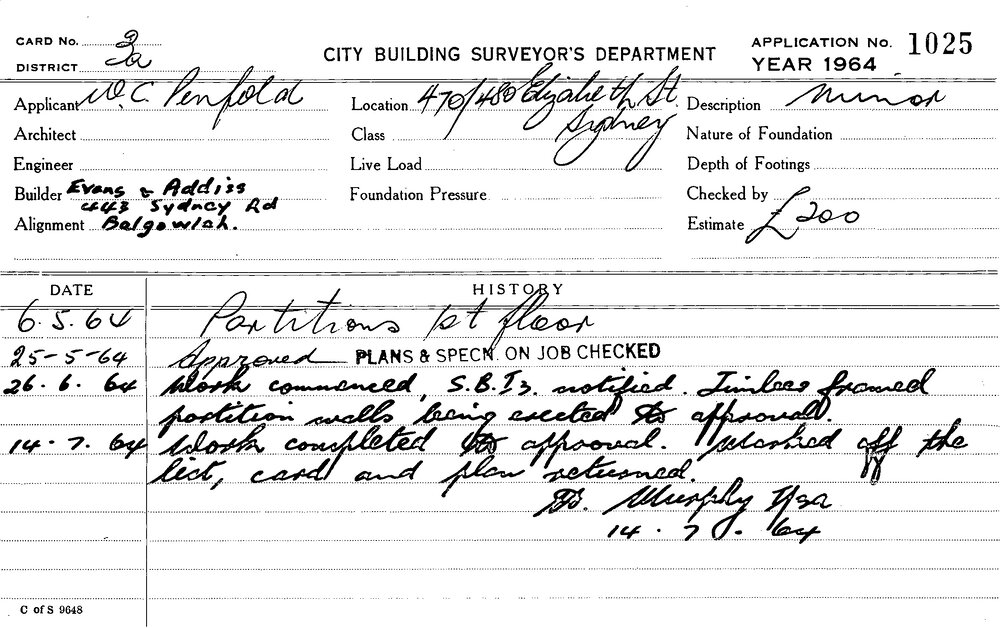 CARD No. 3
DISTRICT 2a
CITY BUILDING SURVEYOR'S DEPARTMENT
APPLICATION No. 1025
YEAR 1964
Applicant W. C. Penfold
Location 470/480 Elizabeth St.
Sydney
Description Minor
Architect
Class
Nature of Foundation
Engineer
Live Load
Depth of Footings
Builder Evans & Addiss
443 Sydney Rd
Foundation Pressure
Checked by
Alignment Balgowlah.
Estimate £200
DATE HISTORY
6.5.64 Partitions 1st floor
25-5-64 Approved PLANS & SPECN. ON JOB CHECKED
26.6.64 Work commenced, S.B.I3. notified. Timber framed
partition walls being erected to approval.
14.7.64 Work completed to approval. Marked off the
list, card and plan returned.
Murphy
14.7.64
C of S 9648